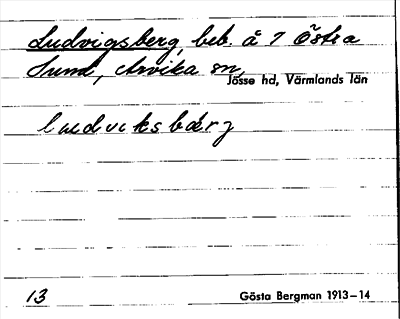 Ludvigsberg, beb. å 7 Östra
Sund, Arvika sn,
Jösse hd, Värmlands län
ludviksbærj
13
Gösta Bergman 1913–14